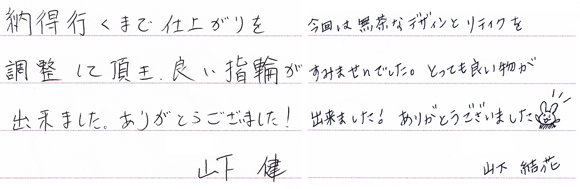 納得行くまで仕上がりを
調整して頂き、良い指輪が
出来ました。ありがとうございました!
山下 健
今回は無茶なデザインとリテイクを
すみませんでした。とっても良い物が
出来ました! ありがとうございました
山下 結花